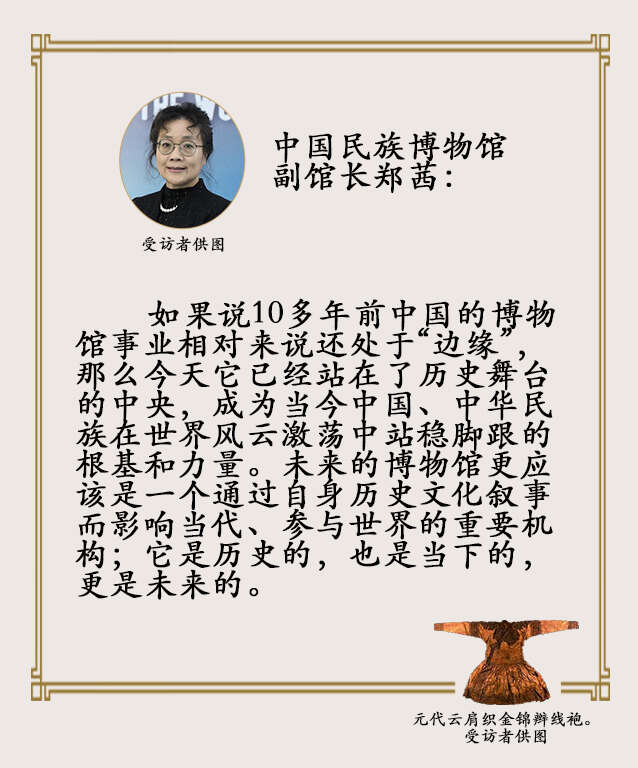 THE WO
中国民族博物馆
副馆长郑茜：
受访者供图
如果说10多年前中国的博物
馆事业相对来说还处于“边缘”，
那么今天它已经站在了历史舞台
的中央，成为当今中国、中华民
族在世界风云激荡中站稳脚跟的
根基和力量。未来的博物馆更应
该是一个通过自身历史文化叙事
而影响当代、参与世界的重要机
构；它是历史的，也是当下的，
更是未来的。
元代云肩织金锦辫线袍。
受访者供图